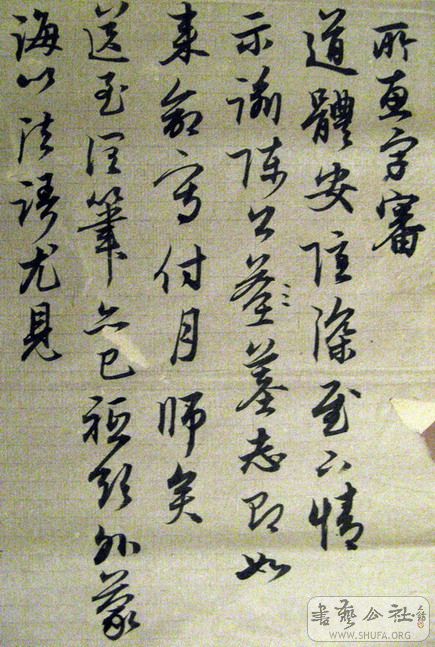 所惠字審
道體安隱深慰下情
示諭陳公墓志即如
来命寫付月師矣
送至潤筆亦已祗領外蒙
誨以法語尤見
書藝公社
WWW.SHUFA.ORG